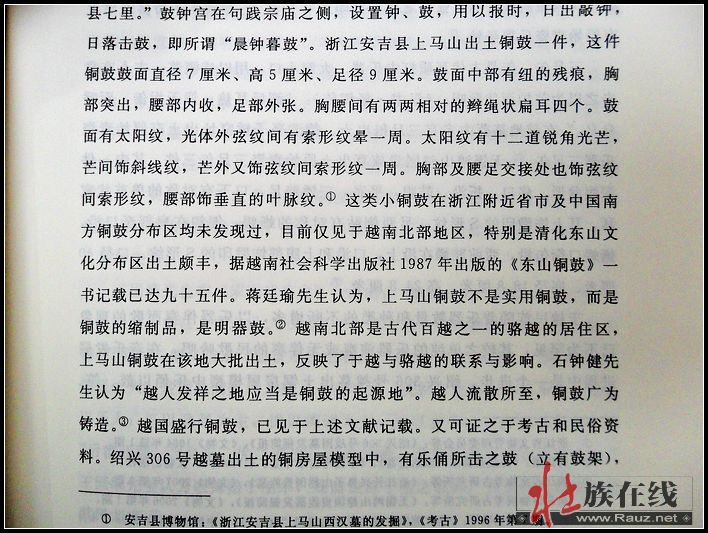 县七里。”鼓钟宫在句践宗庙之侧，设置钟、鼓，用以报时，日出敲钟，
日落击鼓，即所谓“晨钟暮鼓”。浙江安吉县上马山出土铜鼓一件，这件
铜鼓鼓面直径7厘米、高5厘米、足径9厘米。鼓面中部有纽的残痕，胸
部突出，腰部内收，足部外张。胸腰间有两两相对的辫绳状扁耳四个。鼓
面有太阳纹，光体外弦纹间有索形纹晕一周。太阳纹有十二道锐角光芒，
芒间饰斜线纹，芒外又饰弦纹间索形纹一周。胸部及腰足交接处也饰弦纹
间索形纹，腰部饰垂直的叶脉纹。① 这类小铜鼓在浙江附近省市及中国南
方铜鼓分布区均未发现过，目前仅见于越南北部地区，特别是清化东山文
化分布区出土颇丰，据越南社会科学出版社1987年出版的《东山铜鼓》一
书记载已达九十五件。蒋廷瑜先生认为，上马山铜鼓不是实用铜鼓，而是
铜鼓的缩制品，是明器鼓。② 越南北部是古代百越之一的骆越的居住区，
上马山铜鼓在该地大批出土，反映了于越与骆越的联系与影响。石钟健先
生认为“越人发祥之地应当是铜鼓的起源地”。越人流散所至，铜鼓广为
铸造。③ 越国盛行铜鼓，已见于上述文献记载。又可证之于考古和民俗资
料。绍兴306号越墓出土的铜房屋模型中，有乐俑所击之鼓（立有鼓架），
① 安吉县博物馆：《浙江安吉县上马山西汉墓的发掘》，《考古》1996年第
壮族在线
www.Rauz.net